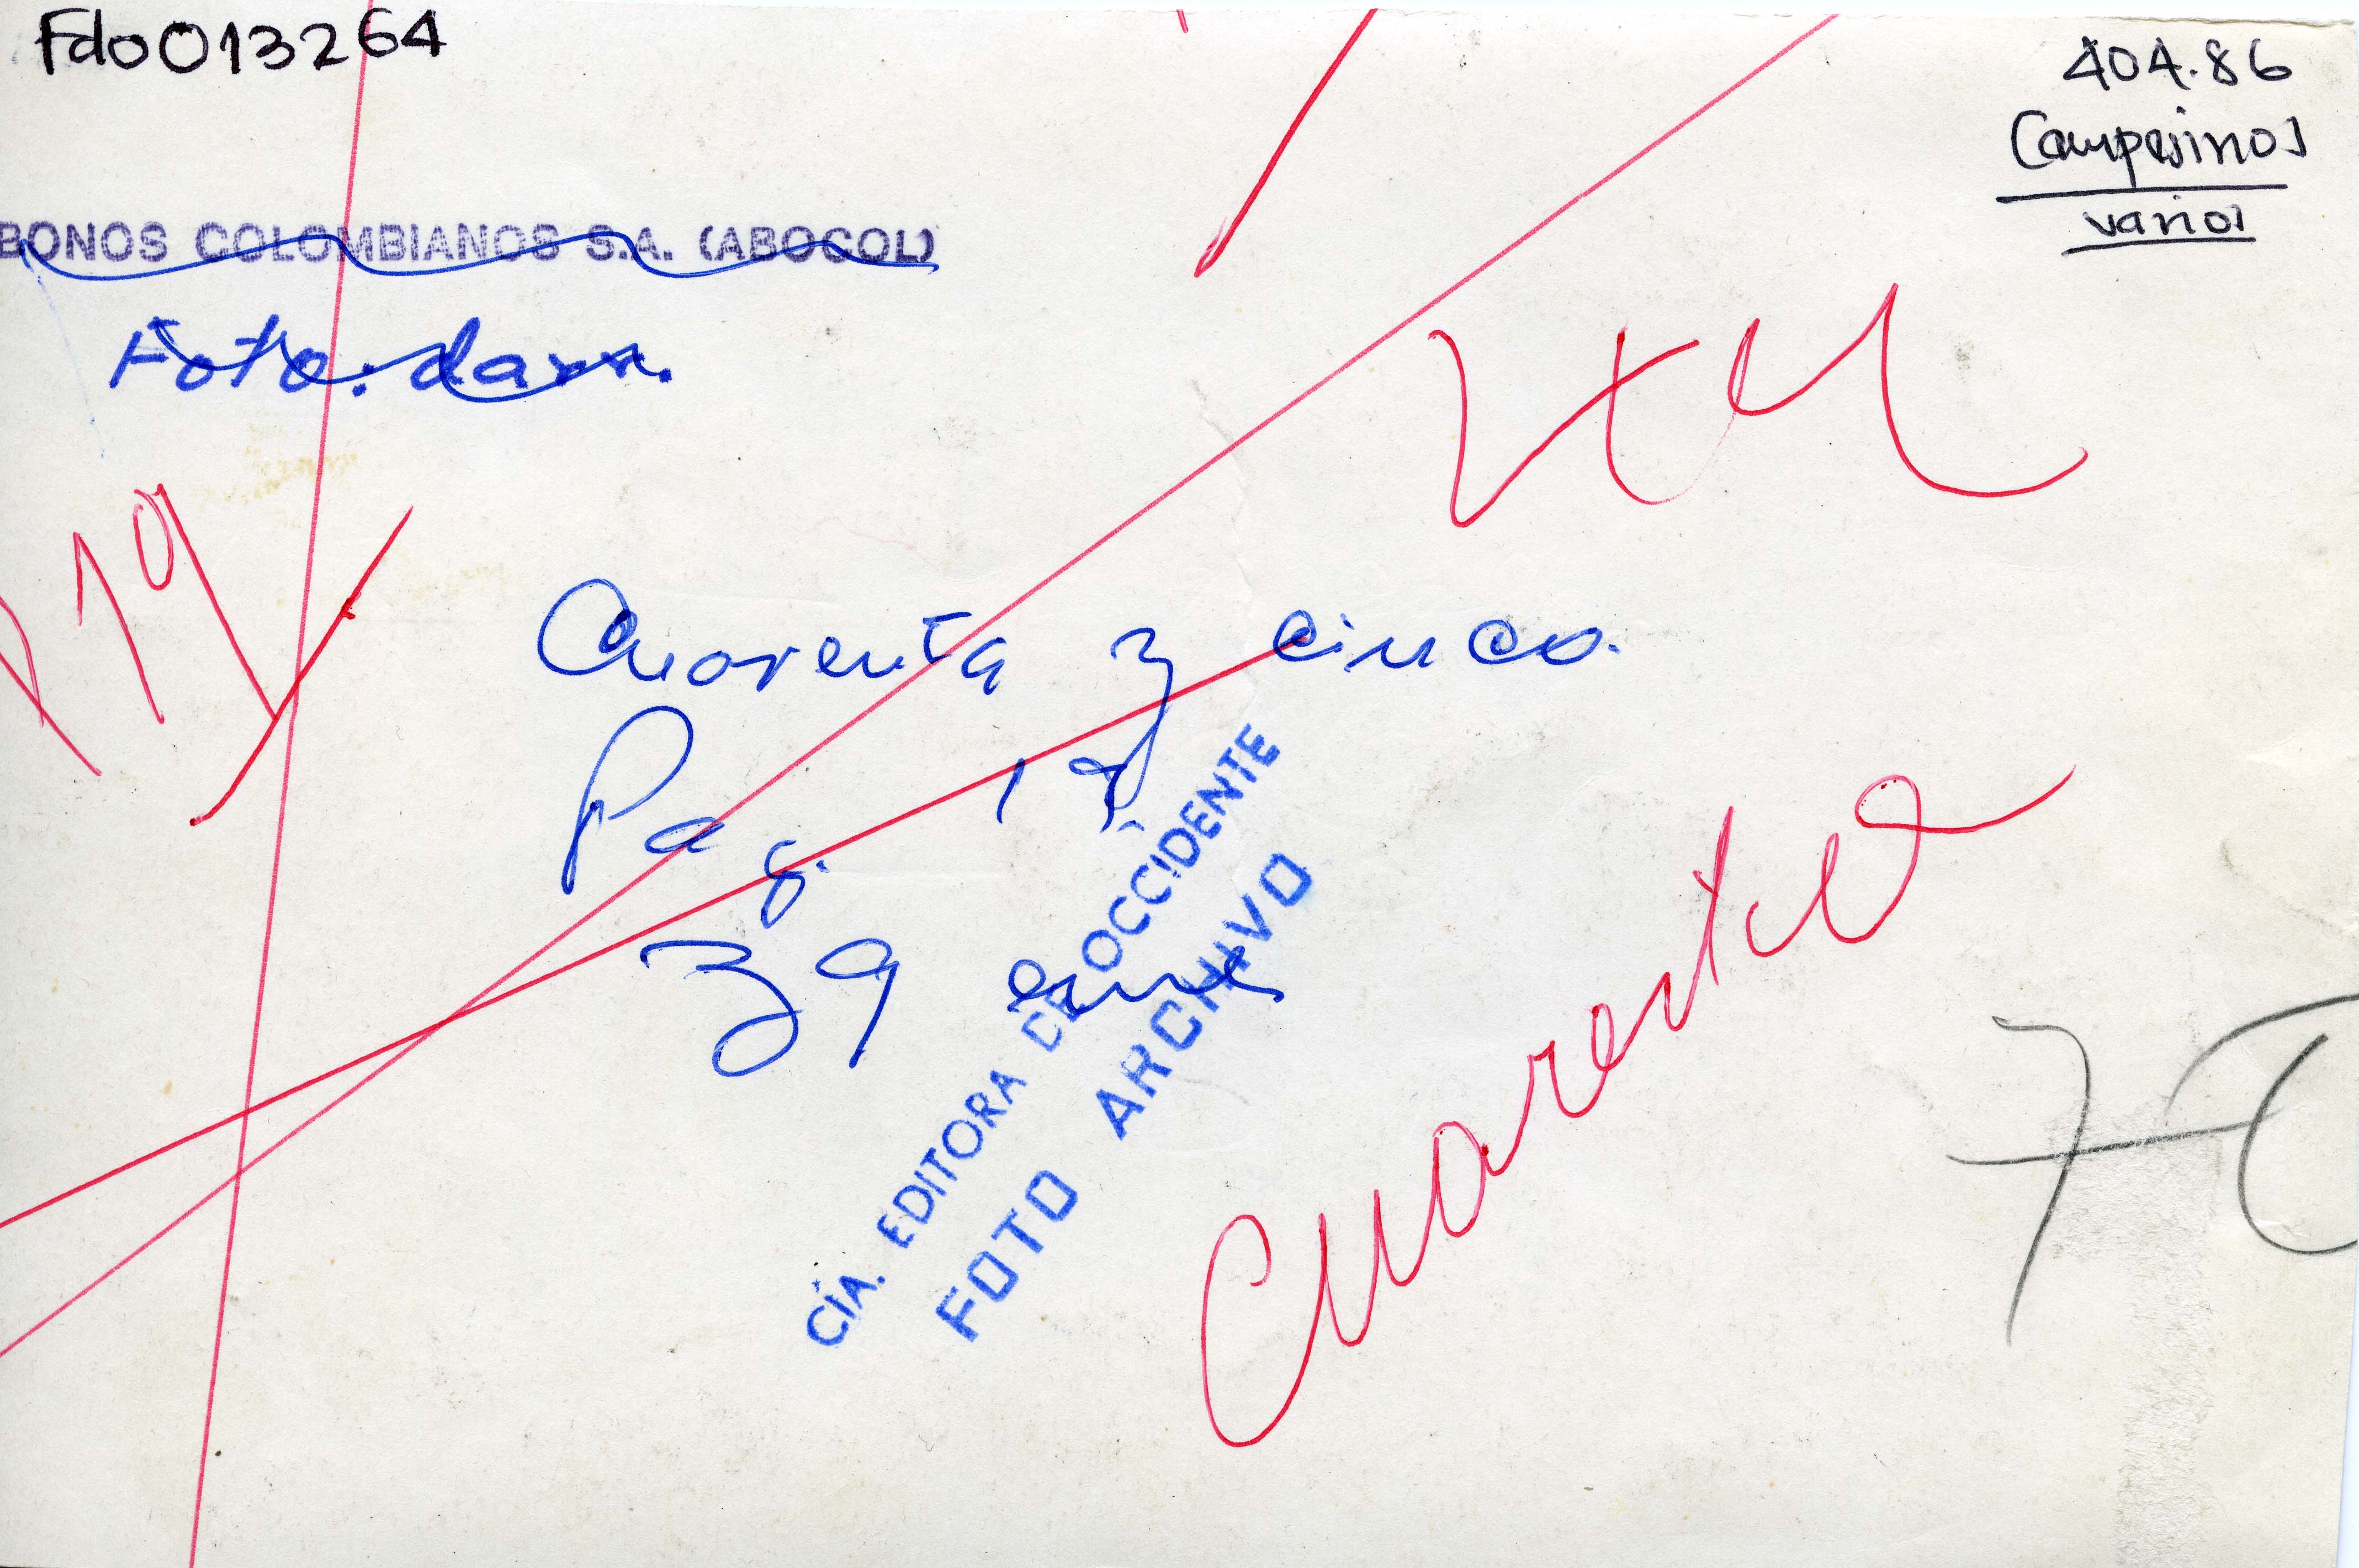 Fdo013264
404.86
Campesinos
varios
BONOS COLOMBIANOS S.A. (ABOCOL)
Foto.
Cuarenta y cinco.
Pag. 1ª
39 ems
CÍA. EDITORA DE OCCIDENTE
FOTO ARCHIVO
Cuarenta